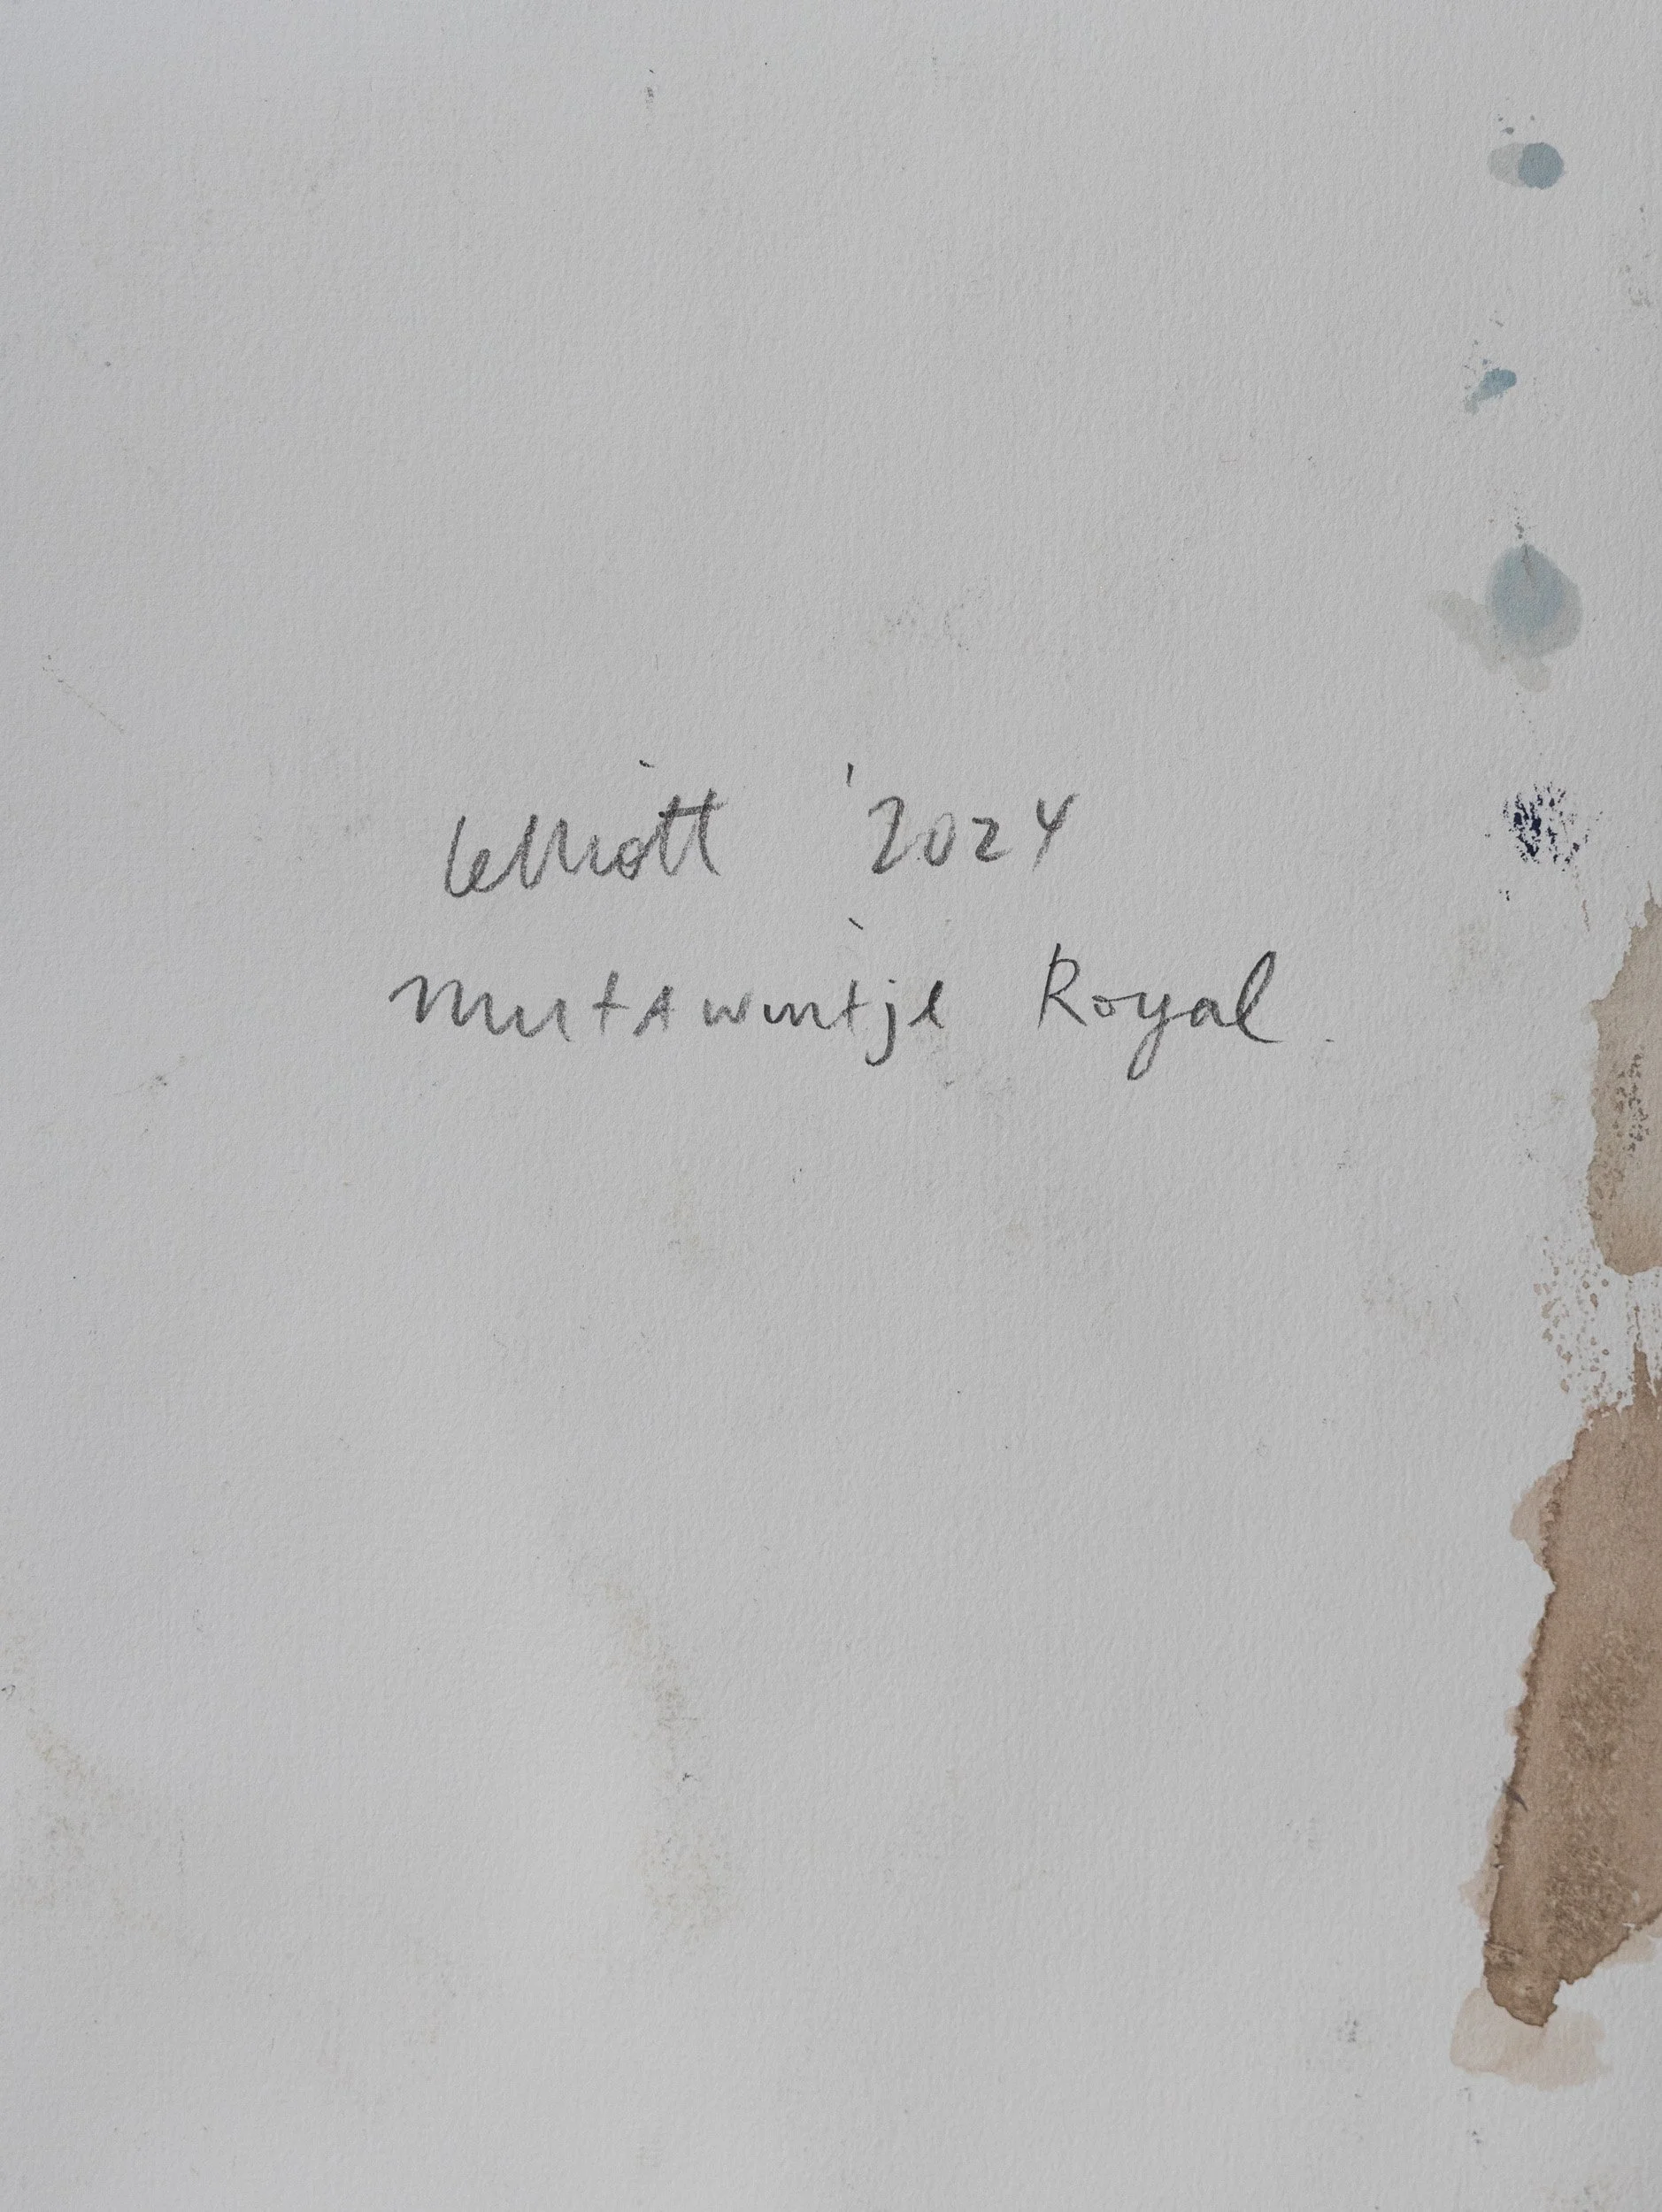 Elliott '2024
Mutawintji Royal